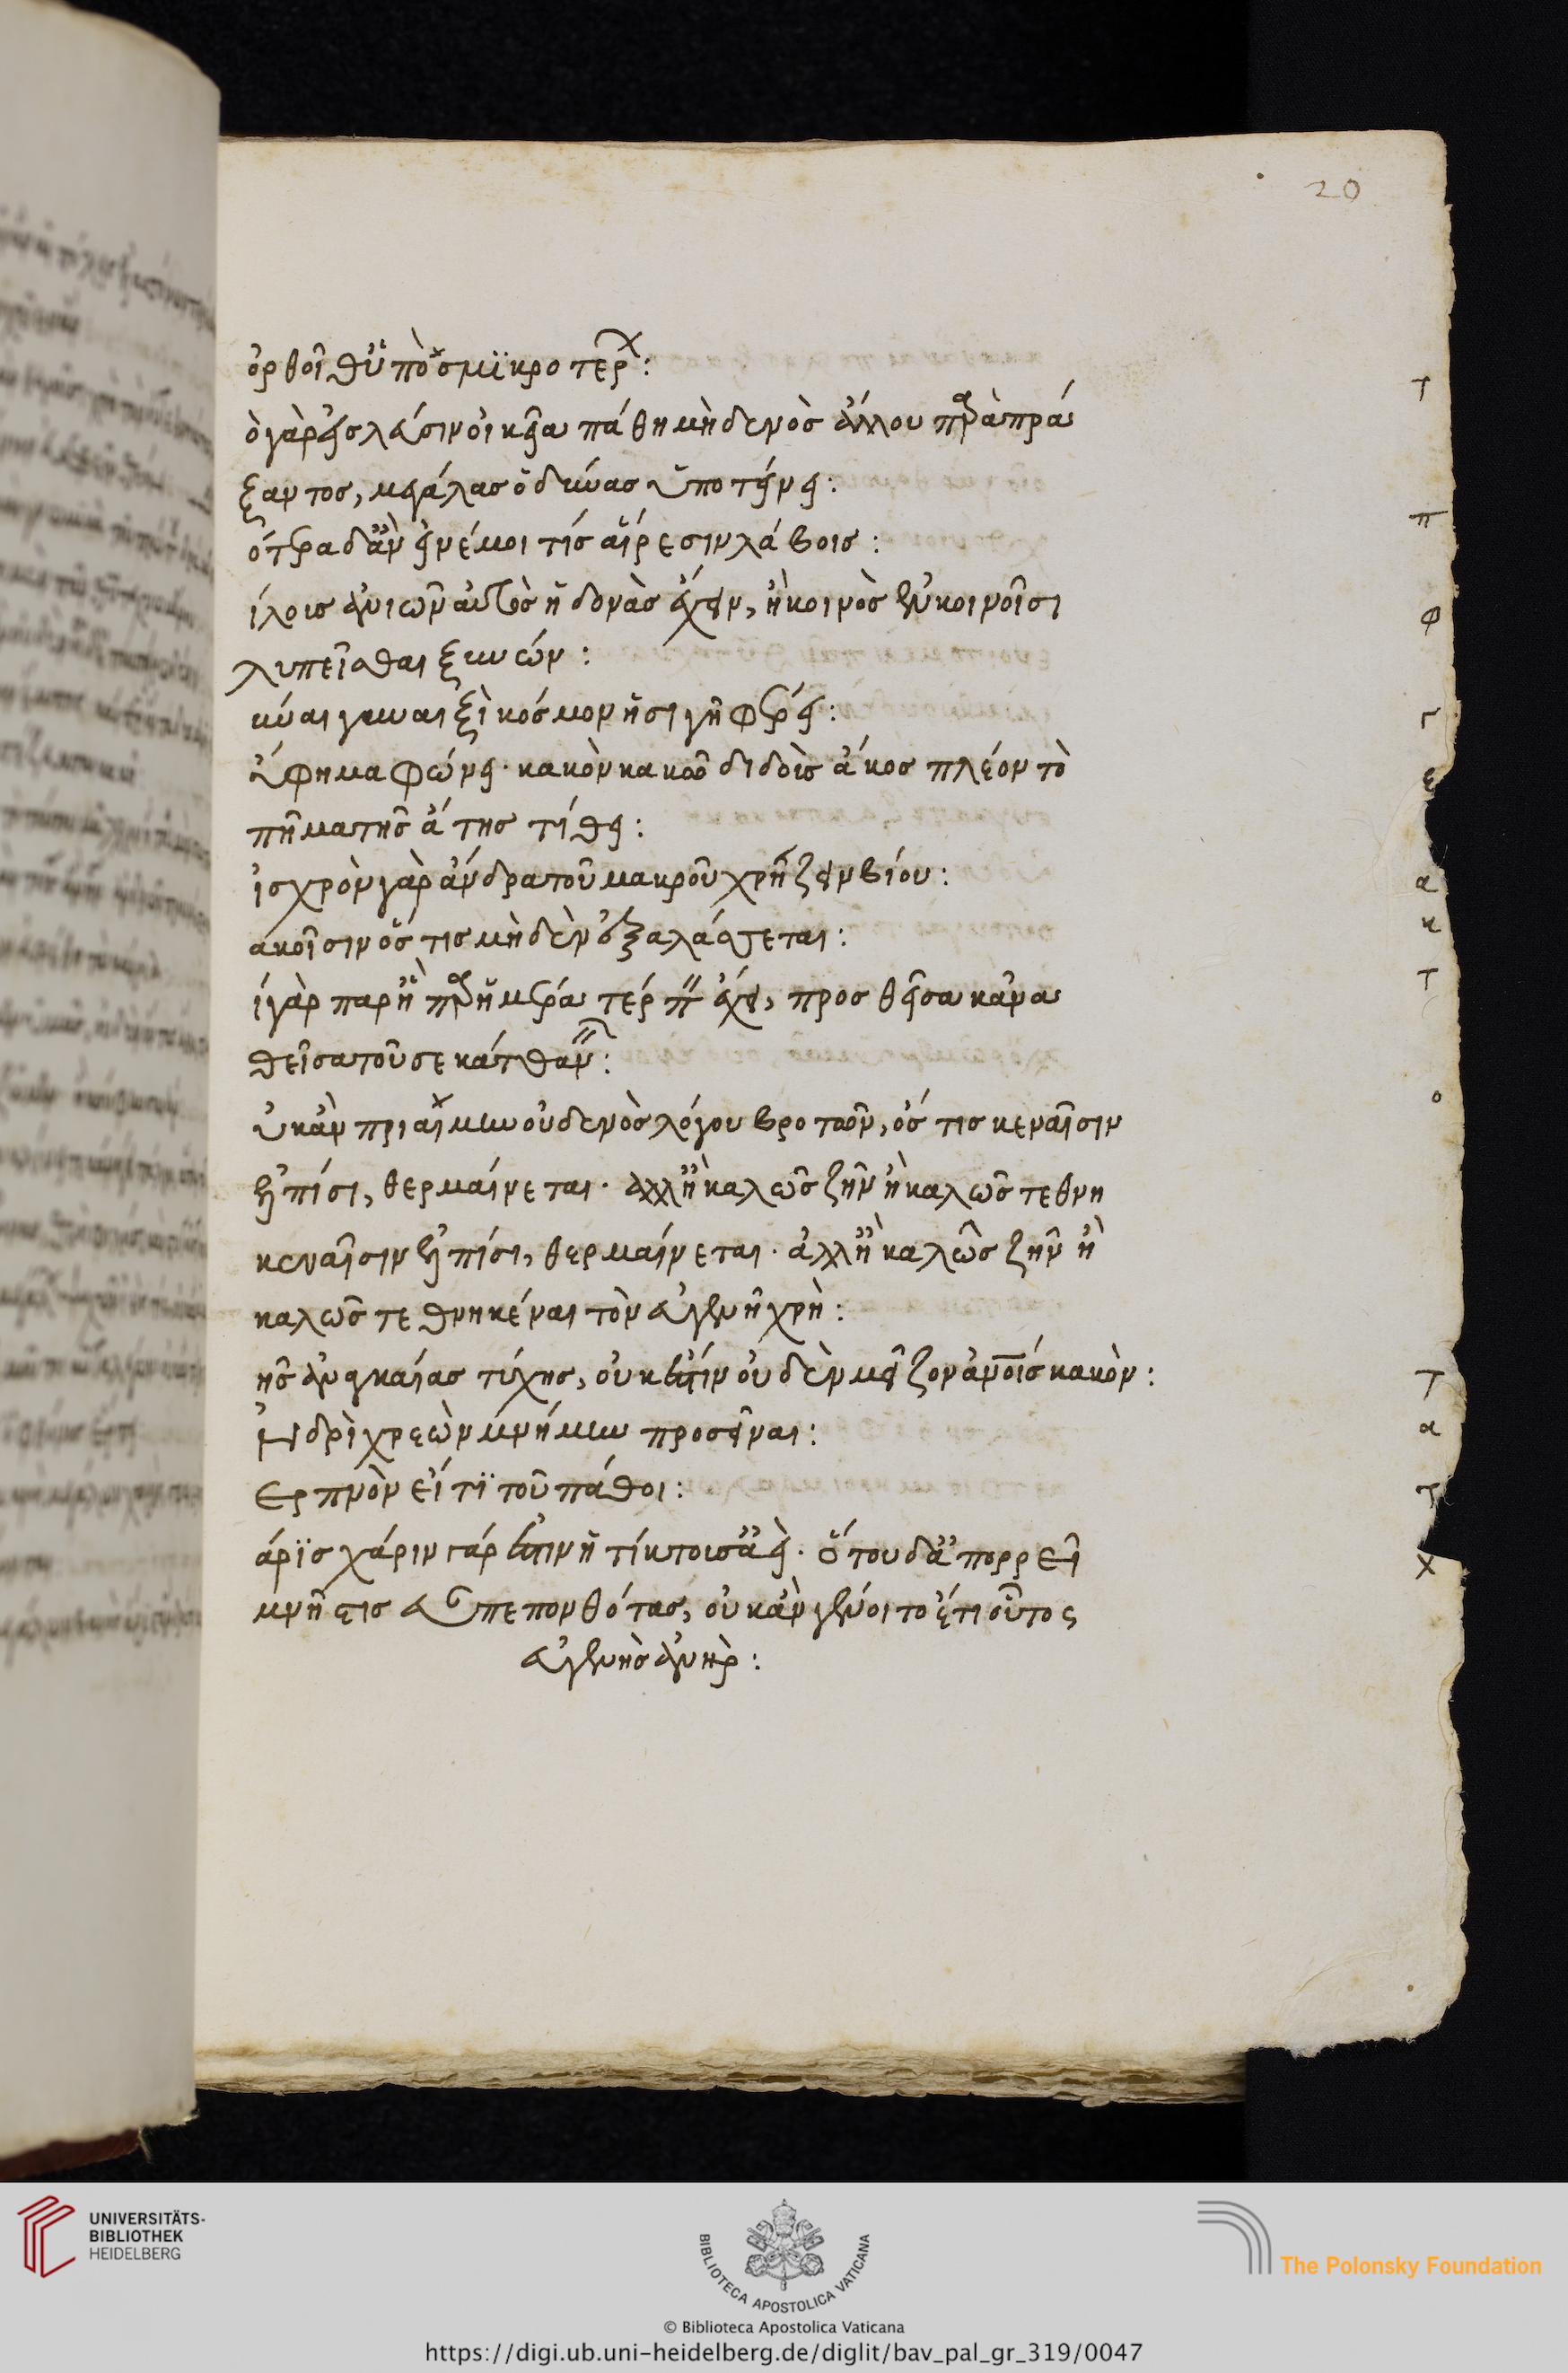 20
ὀρθοῖθ ὕπο σμϊκροτέρων:
ὸγὰρ εἰσλεύσιν οἰκεῖα πάθη μὴδενὸσ ἄλλου παρὰπρά
ξαντος, μεγάλασ ὀδύνασ ὑποτείνει:
ότερα δἂν εἰ νέμοι τίσ αἵρεσιν λάβοισ:
ίλοισ ἀνιῶν αὐτὸσ ἡδονὰσ ἔχειν, ἢ κοινὸσ ἐν κοινοῖσι
λυπεῖσθαι ξυνών:
ύναι γυναιξὶ κόσμον ἡ σιγὴ φέρει:
ύφημα φώνει· κακὸν κακῶ διδοὺσ ἄκοσ πλέον τὸ
πῆμα τῆσ ἄτησ τίθει:
ἰσχρὸν γὰρ ἄνδρα τοῦ μακροῦ χρῄζειν βίου:
ακοῖσιν ὅστισ μὴδὲν ἐξαλάσσεται:
ίγὰρ παρ ἦμαρ ἡμέρα τέρπειν ἔχει, προσθεῖσα κἀνα
θεῖσα τοῦ γε κατθανεῖν:
ὐκ ἂν πριαίμην οὐδενὸσ λόγου βροτὸν, ὅστισ κεναῖσιν
ἐλπίσι, θερμαίνεται· ἀλλ ἢ καλῶσ ζῆν ἢ καλῶσ τεθνη
κεναῖσιν ἐλπίσι, θερμαίνεται· ἀλλ ἢ καλῶσ ζῆν ἢ
καλῶσ τεθνηκέναι τὸν εὐγενῆ χρὴ:
ῆσ ἀναγκαίασ τύχησ, οὐκ ἔστιν οὐδὲν μεῖζον ἀνοισ κακὸν:
νδρὶ χρεὼν μνήμην προσεῖναι:
ερπνὸν εἴ τϊ που πάθοι:
άρϊσ χάριν γάρ ἐστιν ἡ τίκτουσ ἀεὶ· ὅτου δ ἀπορρεῖ
μνῆστισ εὖ πεπονθότασ, οὐκ ἂν γένοιτο ἔτι οὗτος
εὐγενὴσ ἀνὴρ:
τ
π
φ
γ
ε
α
κ
τ
ο
τ
α
τ
χ
UNIVERSITÄTS-
BIBLIOTHEK
HEIDELBERG
BIBLIOTECA APOSTOLICA VATICANA
The Polonsky Foundation
© Biblioteca Apostolica Vaticana
https://digi.ub.uni-heidelberg.de/diglit/bav_pal_gr_319/0047